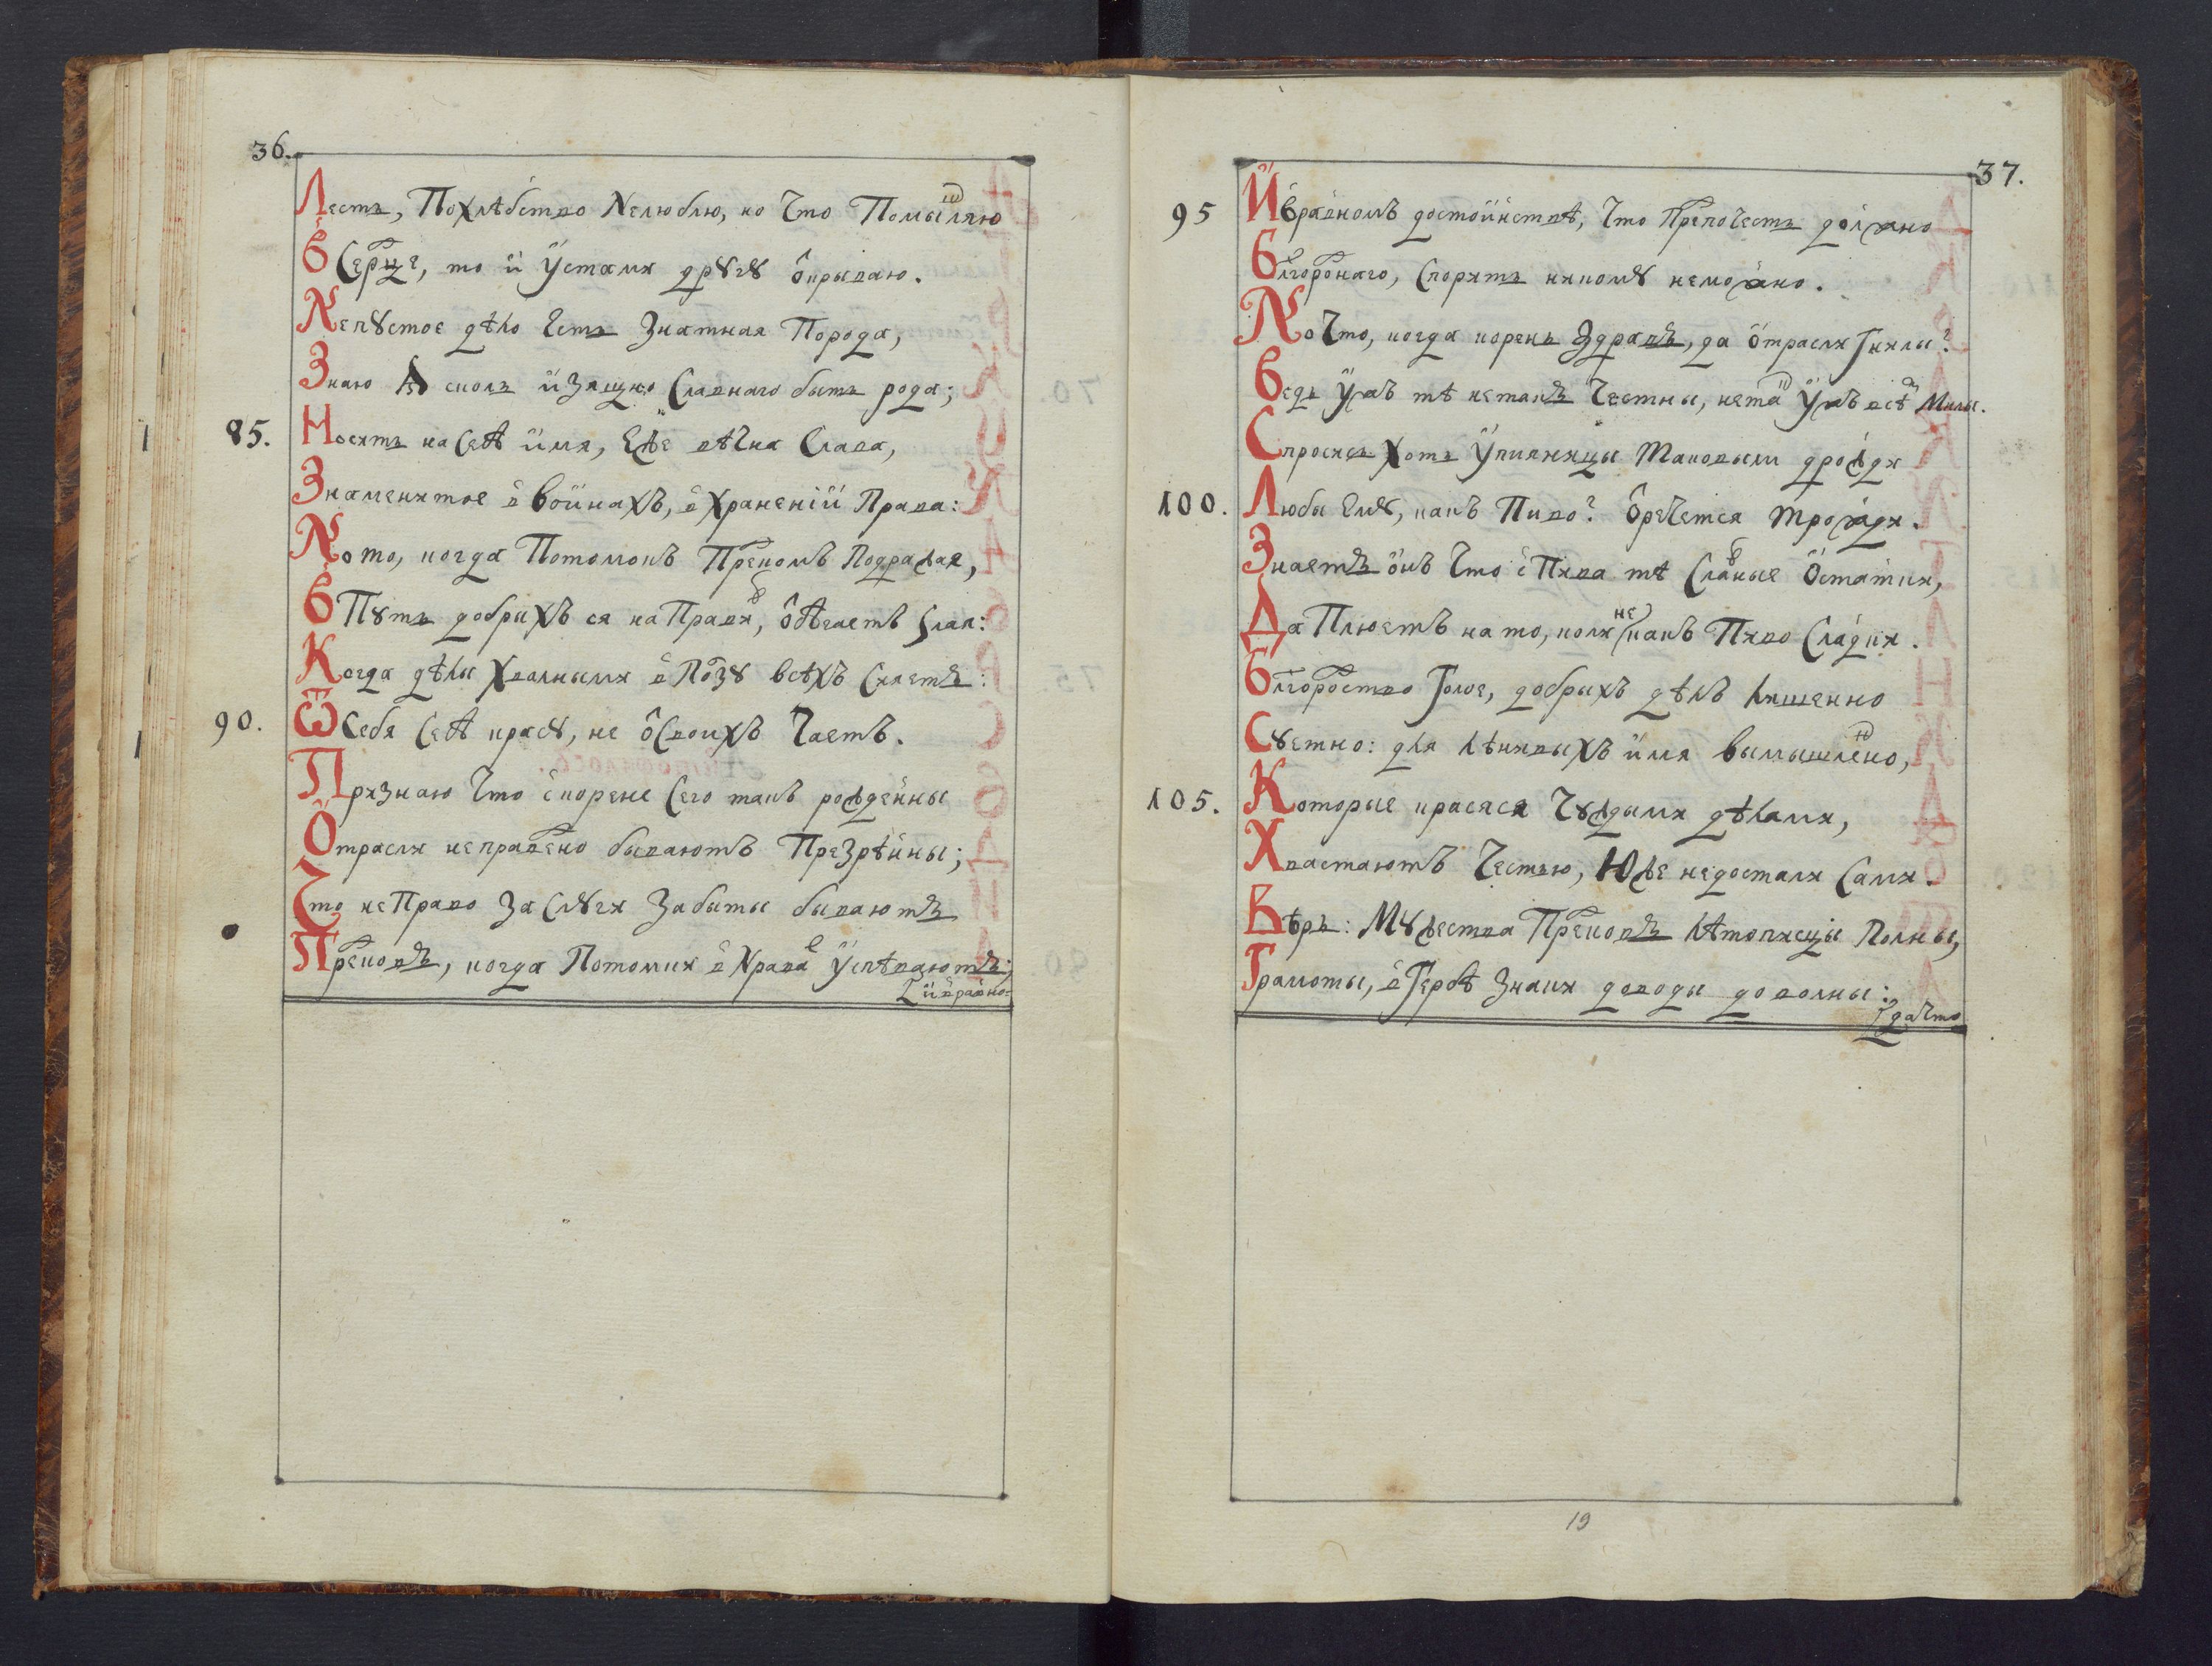 36.
Лесть, Похлѣбство Nелюблю, но Что Помышляю
В Серцѣ, то й Устами дрꙋгꙋ ѿкрываю.
Nепꙋстое дѣло Есть Знатная Порода,
Знаю Ѧ сколь изящно Славнаго быть рода;
85. Носить на Себѣ имя, Еже вѣчна Слава,
Знаменитое в Войнахъ, в Храненїи Права:
Nо то, когда Потомокъ Предкомъ Подражая,
В Пꙋть добрыхъ ся на Правя, ѿбѣгаетъ злая:
Когда дѣлы Хвалными в Ползꙋ всѣхъ Сияетъ:
90. Ѿ Себя Себѣ красꙋ, не ѿ Своихъ Чаетъ.
Признаю Что с корене Сего такъ рожденны
Отрасли неправедно бываютъ Презрѣнны;
Что не Право Заслꙋги Забыты бываютъ
Предковъ, когда Потомки в Нравахъ Успѣваютъ;
и вравно-
37.
95 И вравномъ достоинствѣ, Что Предпочесть должно
Блгороднаго, Спорить никомꙋ неможно.
Nо Что, когда корень Здравъ, да отрасли Гнилы?
Ведь Ужъ тѣ нетакъ Честны, нетакъ Ужъ всѣмъ Милы.
Спросись Хоть Упияницы Таковыли дрожди
100. Любы Емꙋ, какъ Пиво? ѿречется трожди.
Знаетъ онъ Что с Пива тѣ Славные Остатки,
Да Плюетъ на то, коли не какъ Пиво Сладки.
Блгородство Голое, добрыхъ дѣлъ Лишенно
Сꙋетно: для Лѣнивыхъ имя вымышленно,
105. Которые красяся Чꙋждыми дѣлами,
Хвастаютъ Честью, Юже недостали Сами.
Вѣрь: Мꙋжества Предковъ Лѣтописцы Полны,
Грамоты, в Гербѣ Знаки доводы доволны:
да что
19